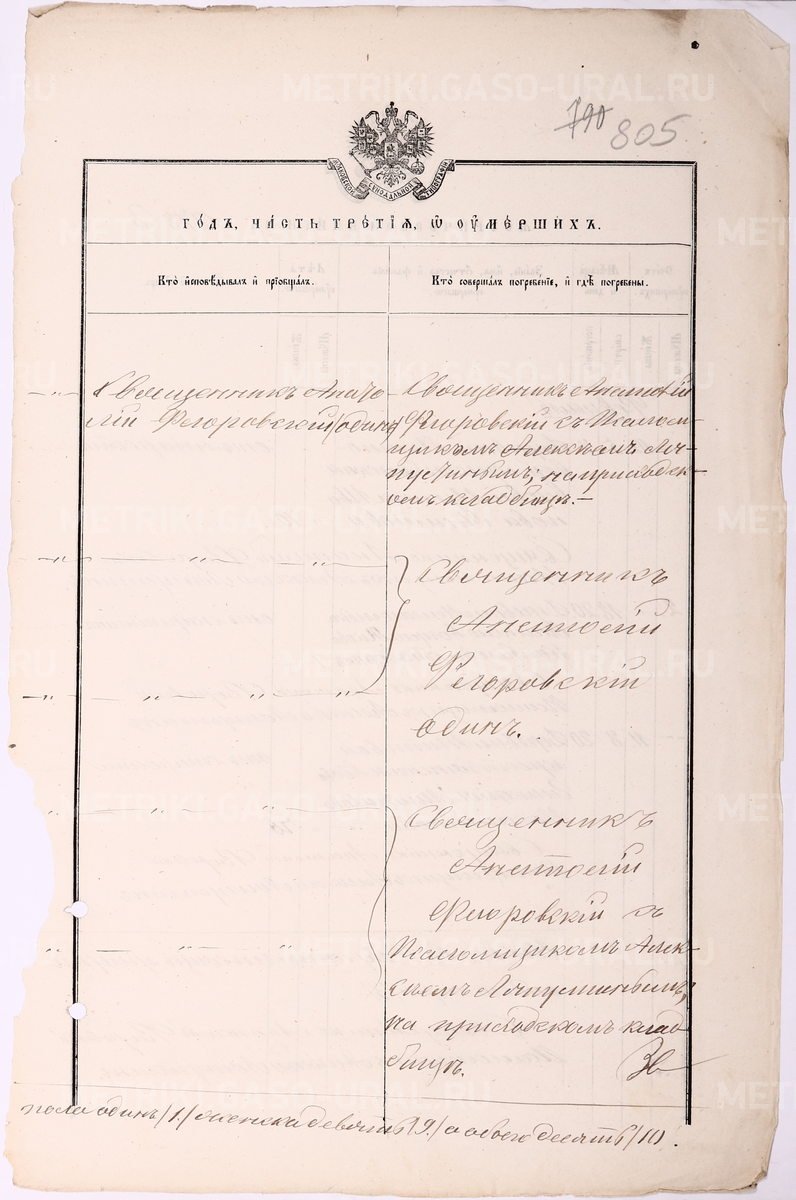 METRIKI.GASO-URAL.RU
790 805
МОСКОВСКОЙ СѴНОДАЛЬНОЙ ТИПОГРАФІИ
ГОДЪ, ЧАСТЬ ТРЕТІЯ, Ѡ ОУМЕРШИХЪ.
Кто исповѣдывалъ и пріобщалъ.
Кто совершалъ погребеніе, и гдѣ погребены.
Священникъ Анато-
лій Флоровскій /одинъ/
Священникъ Анатолій
Флоровскій съ Псалом-
щикомъ Алексѣемъ
на приходск-
омъ кладбищѣ.—
—〃— 〃 〃
Священникъ
Анатолій
Флоровскій
одинъ.
—〃— 〃 〃 〃
〃 〃 〃
Священникъ
Анатолій
Флоровскій съ
Псаломщикомъ Алек-
сѣемъ
на приходскомъ клад-
бищѣ.
〃 〃 〃
пола одинъ /1./ женска девять /9./ а обоего десять /10/.